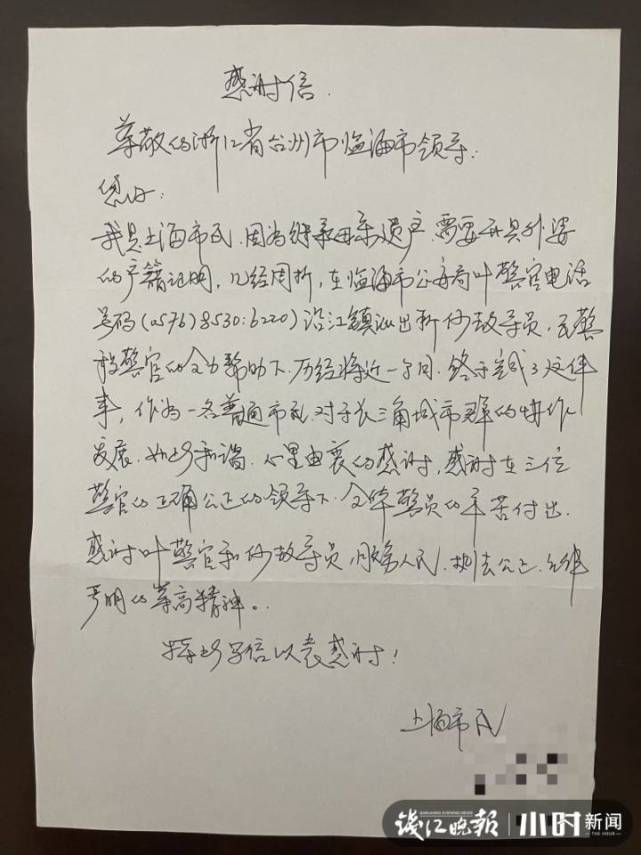 感谢信.
尊敬的浙江省台州市临海市领导:
您好:
我是上海市民,因为继承母亲遗产,需要开具外婆
的户籍证明,几经周折,在临海市公安局叶警官电话
号码(0576)8530:6220)沿江镇派出所 教导员,民警
警官的全力帮助下.历经将近一个月,终于完成了这件
事,作为一名普通市民,对于长三角城市群的协作
发展.如此和谐.心里由衷的感谢,感谢在三位
警官的正确公正的领导下,全体警员的辛苦付出.
感谢叶警官和 教导员,服务人民.执法公正.纪律
严明的崇高精神。.
特此写信以表感谢!
上海市民
钱江晚报 小时新闻